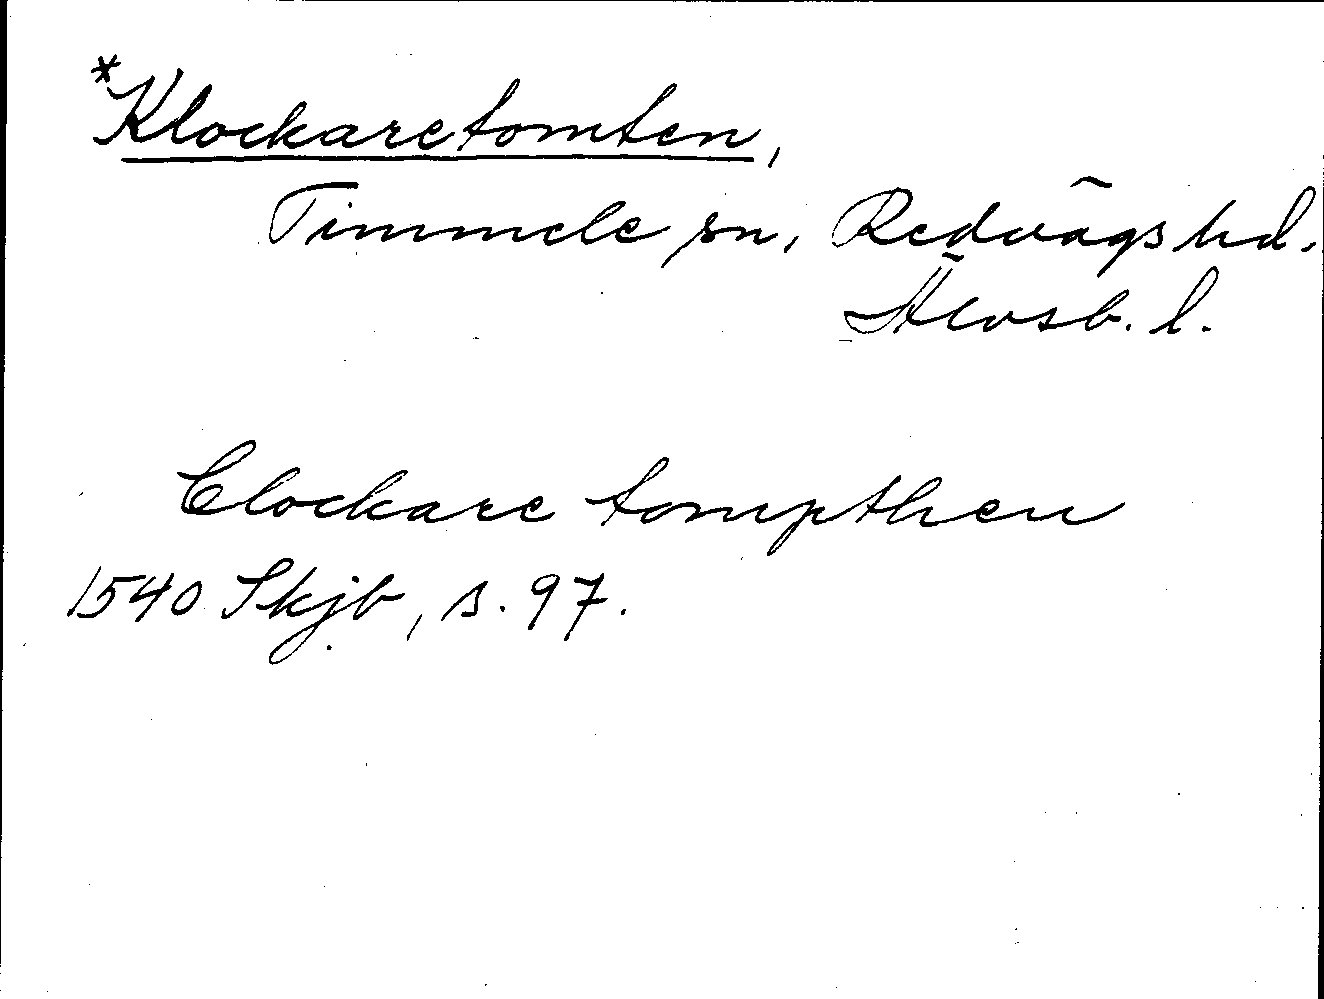 *Klockaretomten,
Timmele sn, Redvägs hd.
Älvsb. l.
Clockare tompthen
1540 Skjb, s. 97.